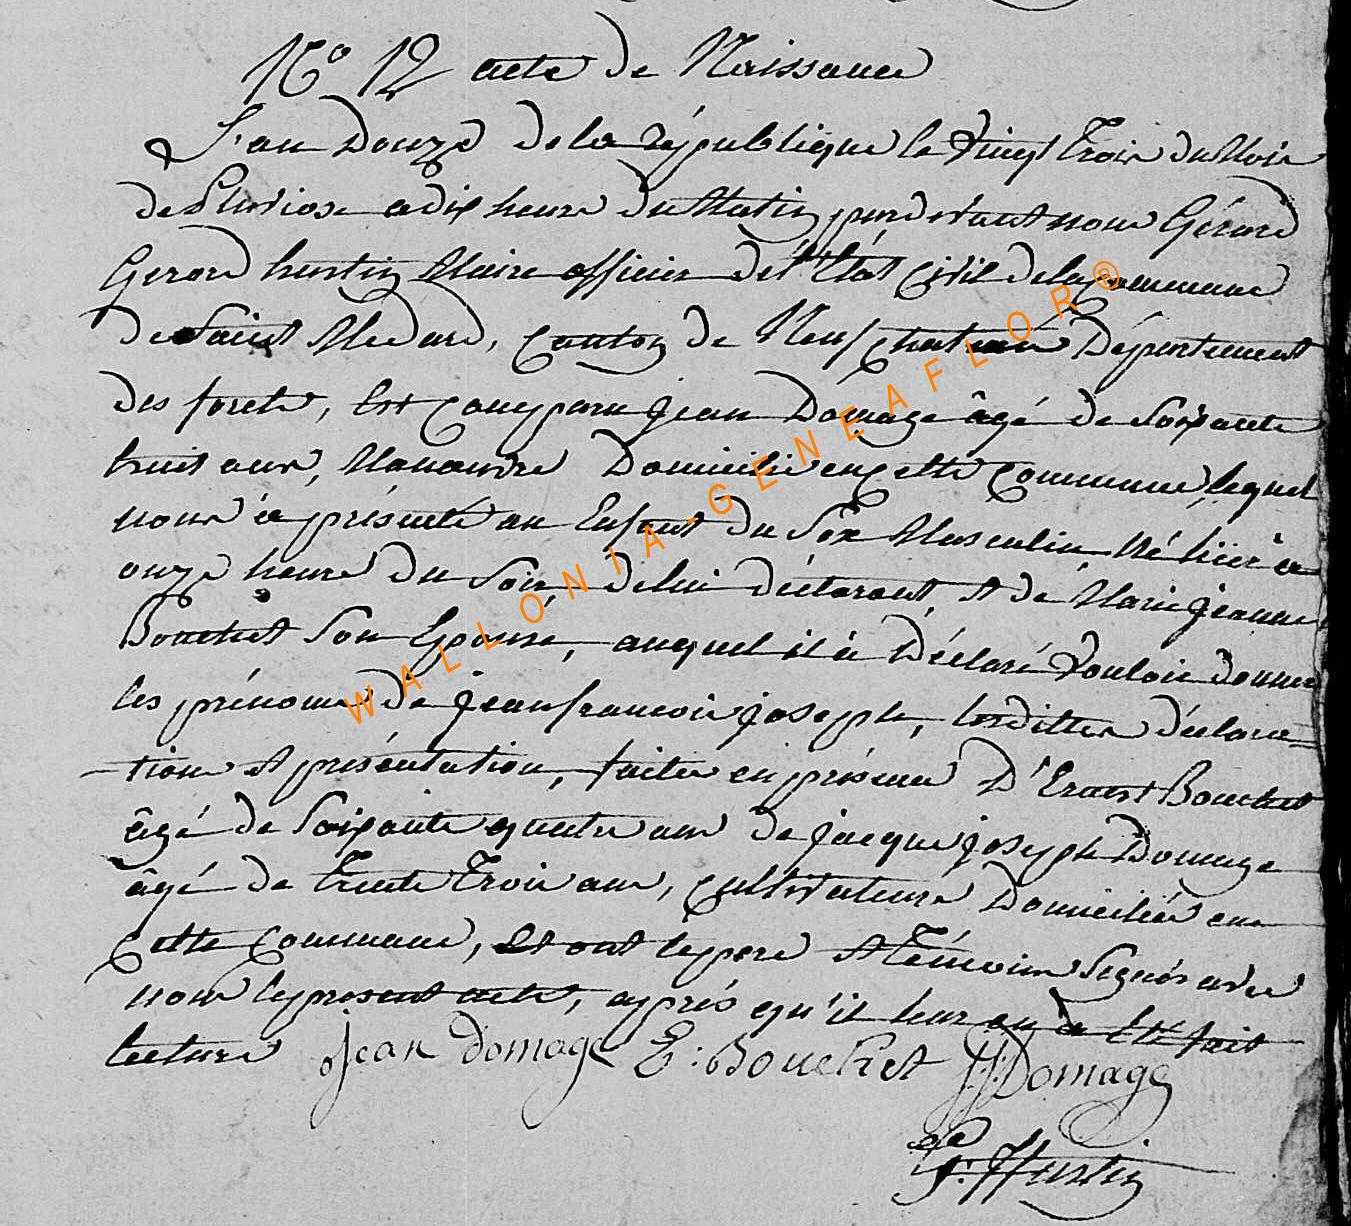 N.° 12 acte de Naissance
L'an Douze de la république le vingt Trois du Mois
de Pluviose a dix heure du Matin pardevant nous Gérard
Gerard hustin Maire officier de l'état Civil de la commune
de Saint Medard, Canton de Neufchateau Département
des forets, est comparu jean Domage âgé de soixante
huit ans, Manouvre Domicilié en cette Commune, lequel
nous à présenté un Enfant du Sex Masculin Né hier à
onze heure du Soir, de lui déclarant, et de Marie jeanne
Bouchet Son Epouse, auquel il à Déclaré Vouloir donner
les prénoms de jean francois joseph, lesdittes déclara=
-tion et présentation, faites en présence D'Ernest Bouchet
âgé de Soixante quatre ans de jacque joseph Domage
âgé de trente Trois ans, cultivateurs Domiciliés en
cette commune, et ont le pere et Témoins Signés avec
nous le present acte, après qu'il leur en à été fait
lecture Jean Domage E: Bouchet JJ: Domage
G: Hustin
WALLONIA-GENEAFLOR®